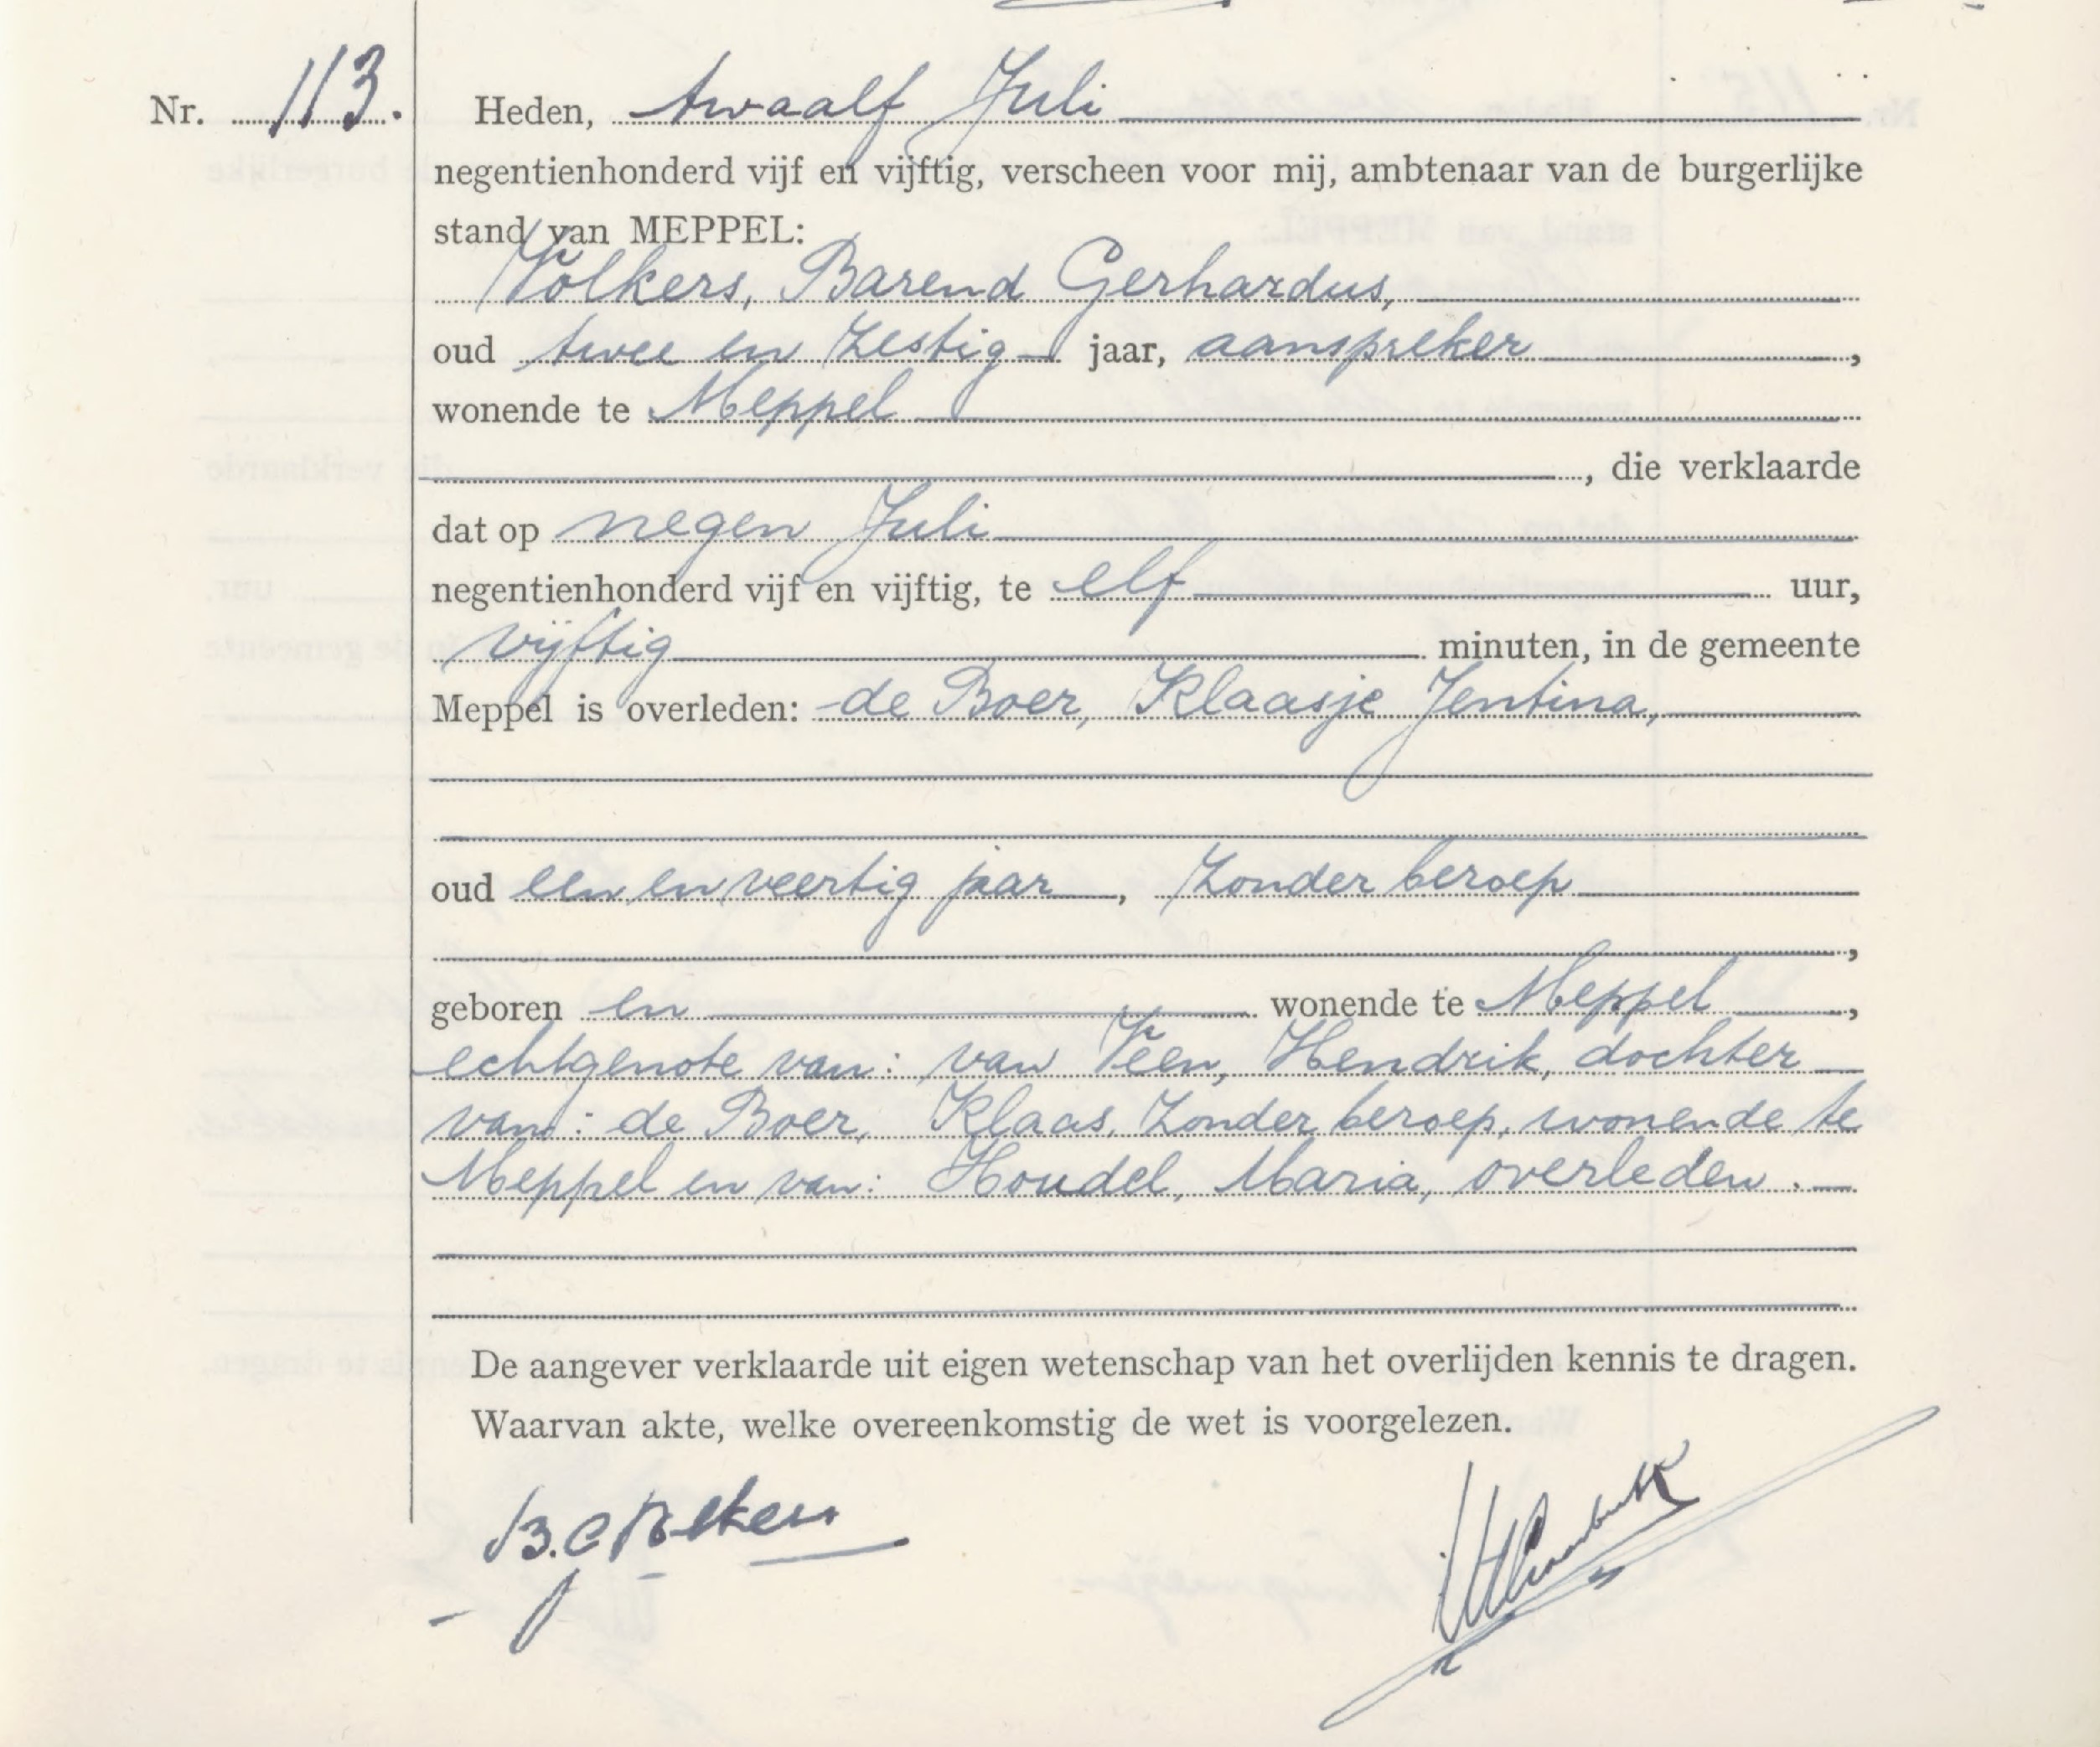 Nr. 113.
Heden, twaalf Juli
negentienhonderd vijf en vijftig, verscheen voor mij, ambtenaar van de burgerlijke
stand van MEPPEL:
Volkers, Barend Gerhardus,
oud twee en zestig jaar, aanspreker,
wonende te Meppel
, die verklaarde
dat op negen Juli
negentienhonderd vijf en vijftig, te elf uur,
vijftig minuten, in de gemeente
Meppel is overleden: de Boer, Klaasje Jentina,
oud een en veertig jaar, zonder beroep
,
geboren en wonende te Meppel,
echtgenote van: van Veen, Hendrik, dochter
van: de Boer, Klaas, zonder beroep, wonende te
Meppel en van: Houdel, Maria, overleden.
De aangever verklaarde uit eigen wetenschap van het overlijden kennis te dragen.
Waarvan akte, welke overeenkomstig de wet is voorgelezen.
B.G. Volkers